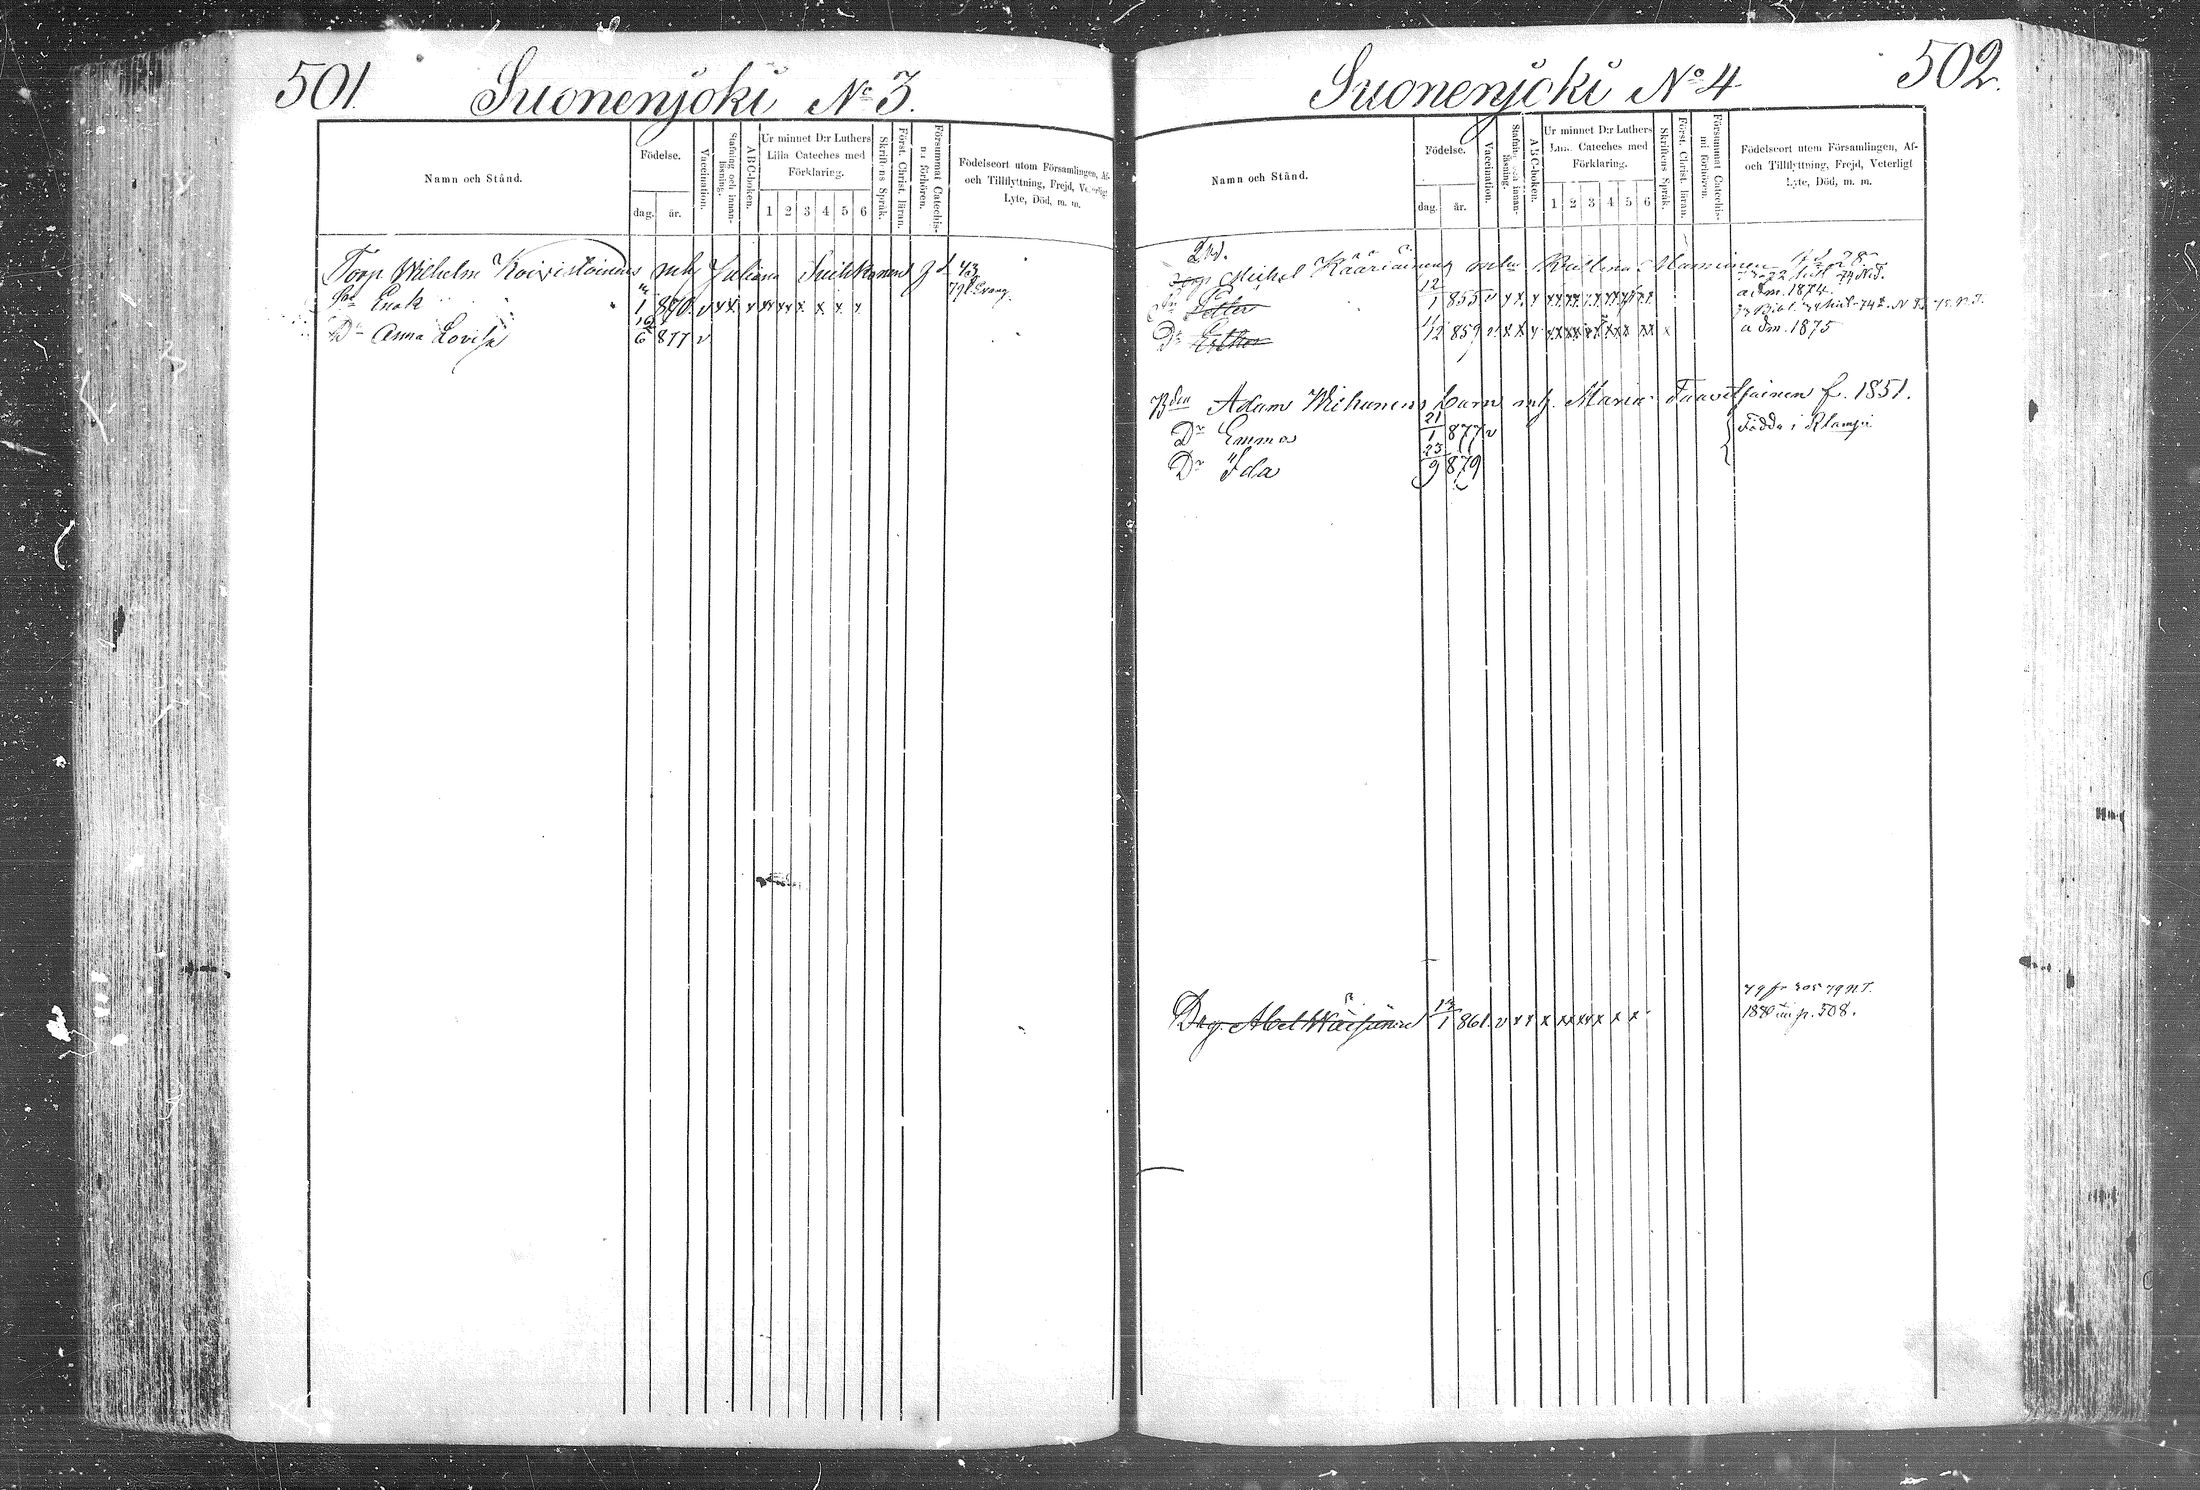 501.
Suonenjoki No 3.
Namn och Stånd.
Födelse.
dag.
år.
Vaccination.
Stafning och innan-
läsning.
ABC-boken.
Ur minnet D:r Luthers
Lilla Cateches med
Förklaring.
1 2 3 4 5 6
Skriftens Språk.
Först. Christ. läran.
Försummat Catechis-
mi förhören.
Födelseort utom Församlingen, Af-
och Tillflyttning, Frejd, Veterligt
Lyte, Död, m. m.
Torp. Wilhelm Koivistoinens mh Juliana
Son Enok 1 870. v x x x x x x x x x x
Dr Anna Lovisa 16/6 877 v
502.
Suonenjoki No 4
Namn och Stånd.
Födelse.
dag.
år.
Vaccination.
Stafning och innan-
läsning.
ABC-boken.
Ur minnet D:r Luthers
Lilla Cateches med
Förklaring.
1 2 3 4 5 6
Skriftens Språk.
Först. Christ. läran.
Försummat Catechis-
mi förhören.
Födelseort utom Församlingen, Af-
och Tillflyttning, Frejd, Veterligt
Lyte, Död, m. m.
Michel Kääriäinens
Petter 12/1 855 v
adm. 1874.
Dr Esther 859 v
adm. 1875
Bden Adam Wichunens barn mh. Maria f. 1851.
Dr Emma 21/1 877 v
Födda i
Dr Ida 23/9 879
Drg. Abel Wäisänen 861. v x x x x x x x x x
1880 till p. 508.